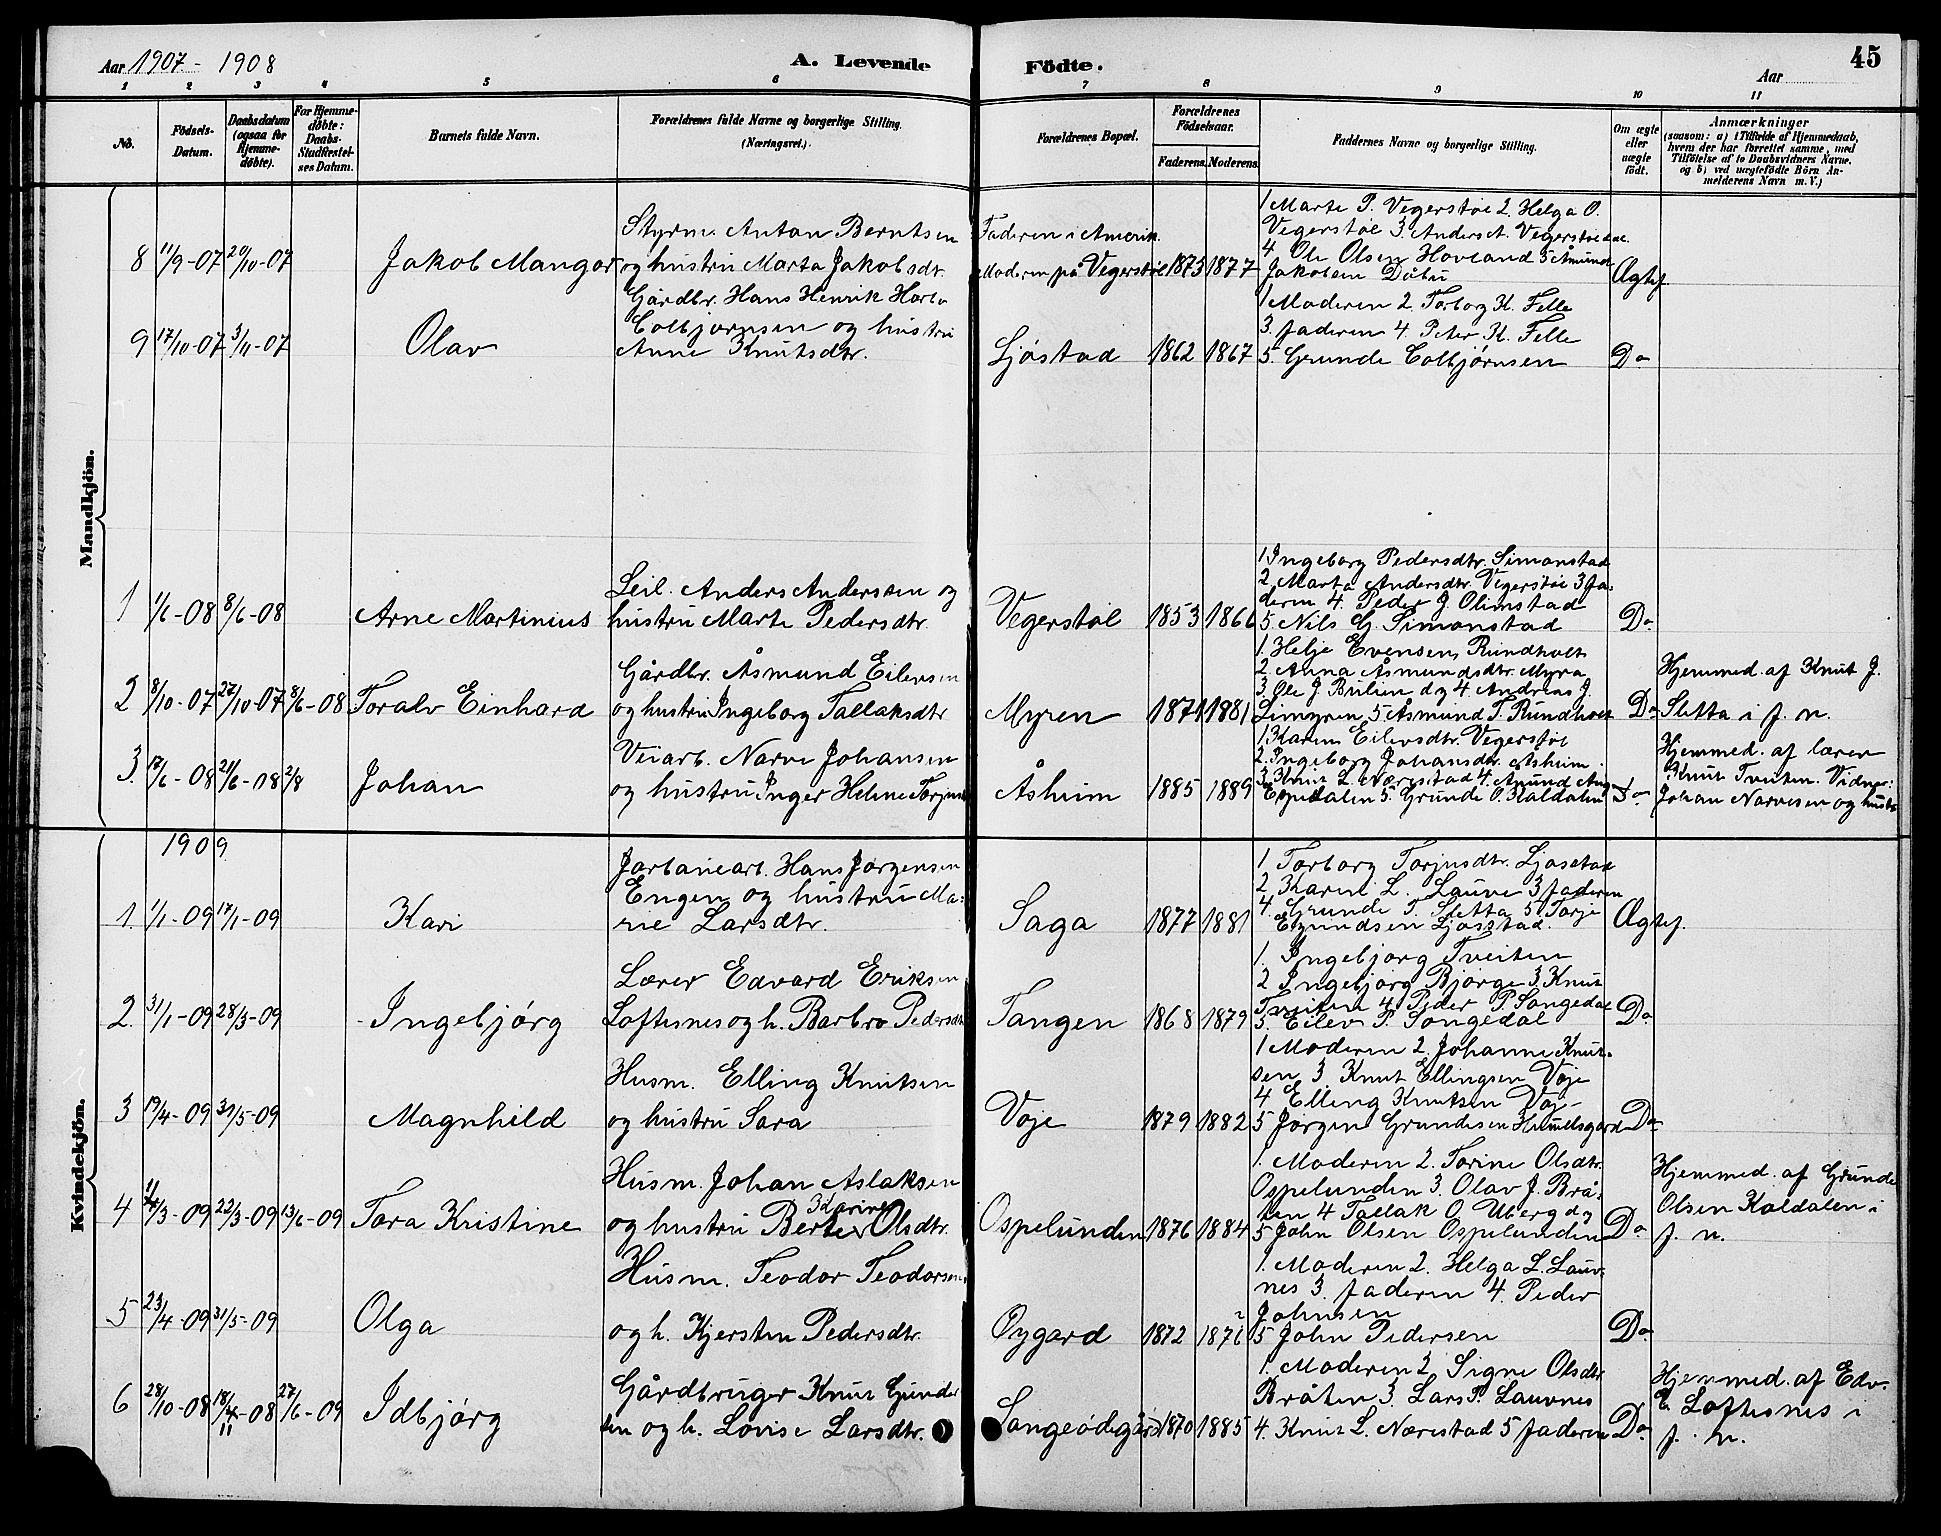 Aar 1907 - 1908
A. Levende Födte.
Aar
45
1 2 3 4 5 6 7 8 9 10 11
No.
Födsels-Datum.
Daabsdatum (ogsaa for Hjemmedöbte).
For Hjemmedöbte: Daabs-Stadfæstelses Datum.
Barnets fulde Navn.
Forældrenes fulde Navne og borgerlige Stilling. (Næringsvei.)
Forældrenes Bopæl.
Forældrenes Födselsaar.
Faderens. Moderens.
Faddernes Navne og borgerlige Stilling.
Om ægte eller uægte födt.
Anmærkninger
(saasom: a) i Tilfælde af Hjemmedaab, hvem der har forrettet samme, med Tilföielse af to Daabsvidners Navne, og b) ved uægtefödte Börn Anmelderens Navn m. V.)
Mandkjön.
8 11/9-07 20/10-07 Jakob Mangor
Styrm. Anton Berntsen
og hustru Marta Jakobsdtr.
Faderen i Amerik.
Moderen på Vegerstøl 1873 1877
1 Marte P. Vegerstøl 2. Helga O.
Vegerstøl 3. Anders A. Vegerstøl
4. Ole Olsen Hovland 5 Åmund
Jakobsen Dåbu
Ægtef.
9 17/10-07 3/11-07 Olav
Gårdbr. Hans Henrik
Colbjørnsen og hustru
Anne Knutsdtr.
Ljøstad 1862 1867
1 Moderen 2 Torborg K. Felle
3. faderen 4. Peter K. Felle
5. Grunde Colbjørnsen
Do
1 1/6-08 8/6-08 Arne Martinius
Leil. Anders Andersen og
hustru Marte Pedersdtr.
Vegerstøl 1853 1866
1 Ingeborg Pedersdtr. Simonstad
2. Marta Andersdtr. Vegerstøl 3 fa-
deren 4. Peder J. Olimstad
5. Nils G. Simonstad
Do
2 8/10-07 27/10-07 8/6-08 Toralv Einhard
Gårdbr. Åsmund Eilevsen
og hustru Ingeborg Tallaksdtr
Myren 1871 1881
1. Helje Evensen Rundholt
2. Anna Åsmundsdtr. Myra
3. Ole J. Bulien og 4. Andreas J.
Limyren 5 Åsmund T. Rundholt
Do
Hjemmed. af Knut J.
Sletta i f. n.
3. 17/6-08 21/6-08 2/8 Johan
Veiarb. Narve Johansen
og hustru Inger Helene
Åsheim 1885 1889
1. Karen Eilevsdtr. Vegerstøl
2. Ingeborg Johansdtr. Åsheim.
3. Knut L. Nærestad 4. Åmund
Espedalen 5. Grunde O. Kaldalen
Do
Hjemmed. af lærer
Knut Tveiten. Vidner:
Johan Narvesen og hustr.
Kvindekjön.
1909
1. 1/1-09 17/1-09 Kari
Jarbanearb. Hans Jørgensen
Engen og hustru Ma-
rie Larsdtr.
Saga 1877 1881
1. Torborg Torjusdtr. Ljøsstad
2. Karen L. Lauve 3 faderen
4. Grunde T. Sletta 5 Torje
Egundsen Ljøsstad.
Ægtef.
2. 31/1-09 28/3-09 Ingebjørg
Lærer Edvard Eriksen
Loftesnes og h. Barbro Pedersdtr
Tangen 1868 1879
1. Ingebjørg Tveiten
2 Ingebjørg Bjørge 3. Knut
Tveiten 4 Peder P. Songedal
5. Eilev P. Songedal
Do
3 19/4-09 31/5-09 Magnhild
Husm. Elling Knutsen
og hustru Sara
Voje 1879 1882
1 Moderen 2. Johanne Knut-
sen 3. Knut Ellingsen Voje
4 Elling Knutsen Voje
5 Jørgen Grundesen Himelsgard
Do
4 11/3-09 22/3-09 13/6-09 Tora Kristine
Husm. Johan Aslaksen
og hustru Berte Karine Olsdtr.
Ospelunden 1876 1884
1. Moderen 2. Torine Olsdtr.
Ospelunden 3. Olav J. Brå-
ten 4 Tallak O. Uberg og
5 John Olsen Ospelunden
Do
Hjemmed. af Grunde
Olsen Kaldalen i
f. n.
5 23/4-09 31/5-09 Olga
Husm. Teodor Teodorsen
og h. Kjersten Pedersdtr.
Øygard 1872 1876
1. Moderen 2. Helga L. Lauv-
nes 3. faderen 4. Peder
Johnsen
5 John Pedersen
Do
6 28/10-08 18/11-08 27/6-09 Idbjørg
Gårdbruger Knut Gunder
sen og h. Lovise Larsdtr.
Songeødegård 1870 1885
1. Moderen 2. Signe Olsdtr
Bråten 3. Lars P. Lauvnes
4. Knut L. Nærestad 5 faderen
Do
Hjemmed. af Edv.
E. Loftesnes i
f. n.